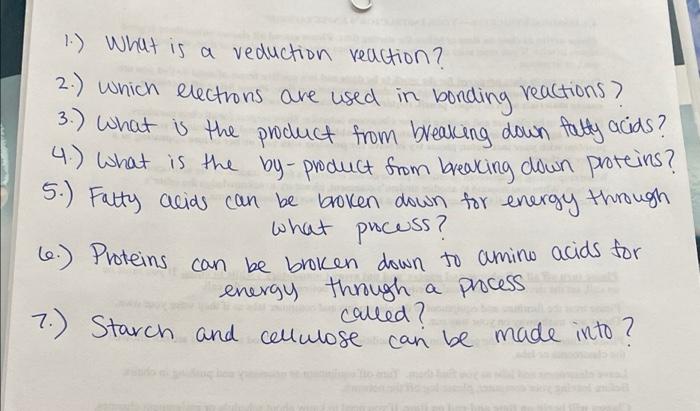 1.) What is a reduction reaction?
2.) Which electrons are used in bonding reactions?
3.) What is the product from breaking down fatty acids?
4.) What is the by-product from breaking down proteins?
5.) Fatty acids can be broken down for energy through
what process?
6.) Proteins can be broken down to amino acids for
energy through a process
called?
7.) Starch and cellulose can be made into?